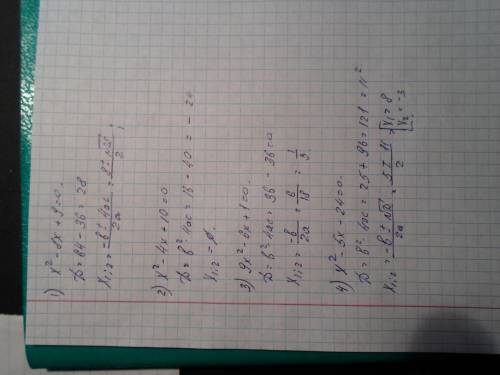 1) x² - 8x + 9 = 0.
D = 64 - 36 = 28
x₁;₂ = (-b ± √4ac)/2a = (8 ± √28)/2;
2) x² - 4x + 10 = 0
D = b² - 4ac = 16 - 40 = - 24
x₁;₂ = - ∅.
3) 9x² - 6x + 1 = 0.
D = b² - 4ac = 36 - 36 = 0
x₁;₂ = -b/2a = 6/18 = 1/3.
4) x² - 5x - 24 = 0.
D = b² - 4ac = 25 + 96 = 121 = 11²
x₁;₂ = (-b ± √D)/2a = (5 ± 11)/2 = [x₁ = 8
x₂ = -3